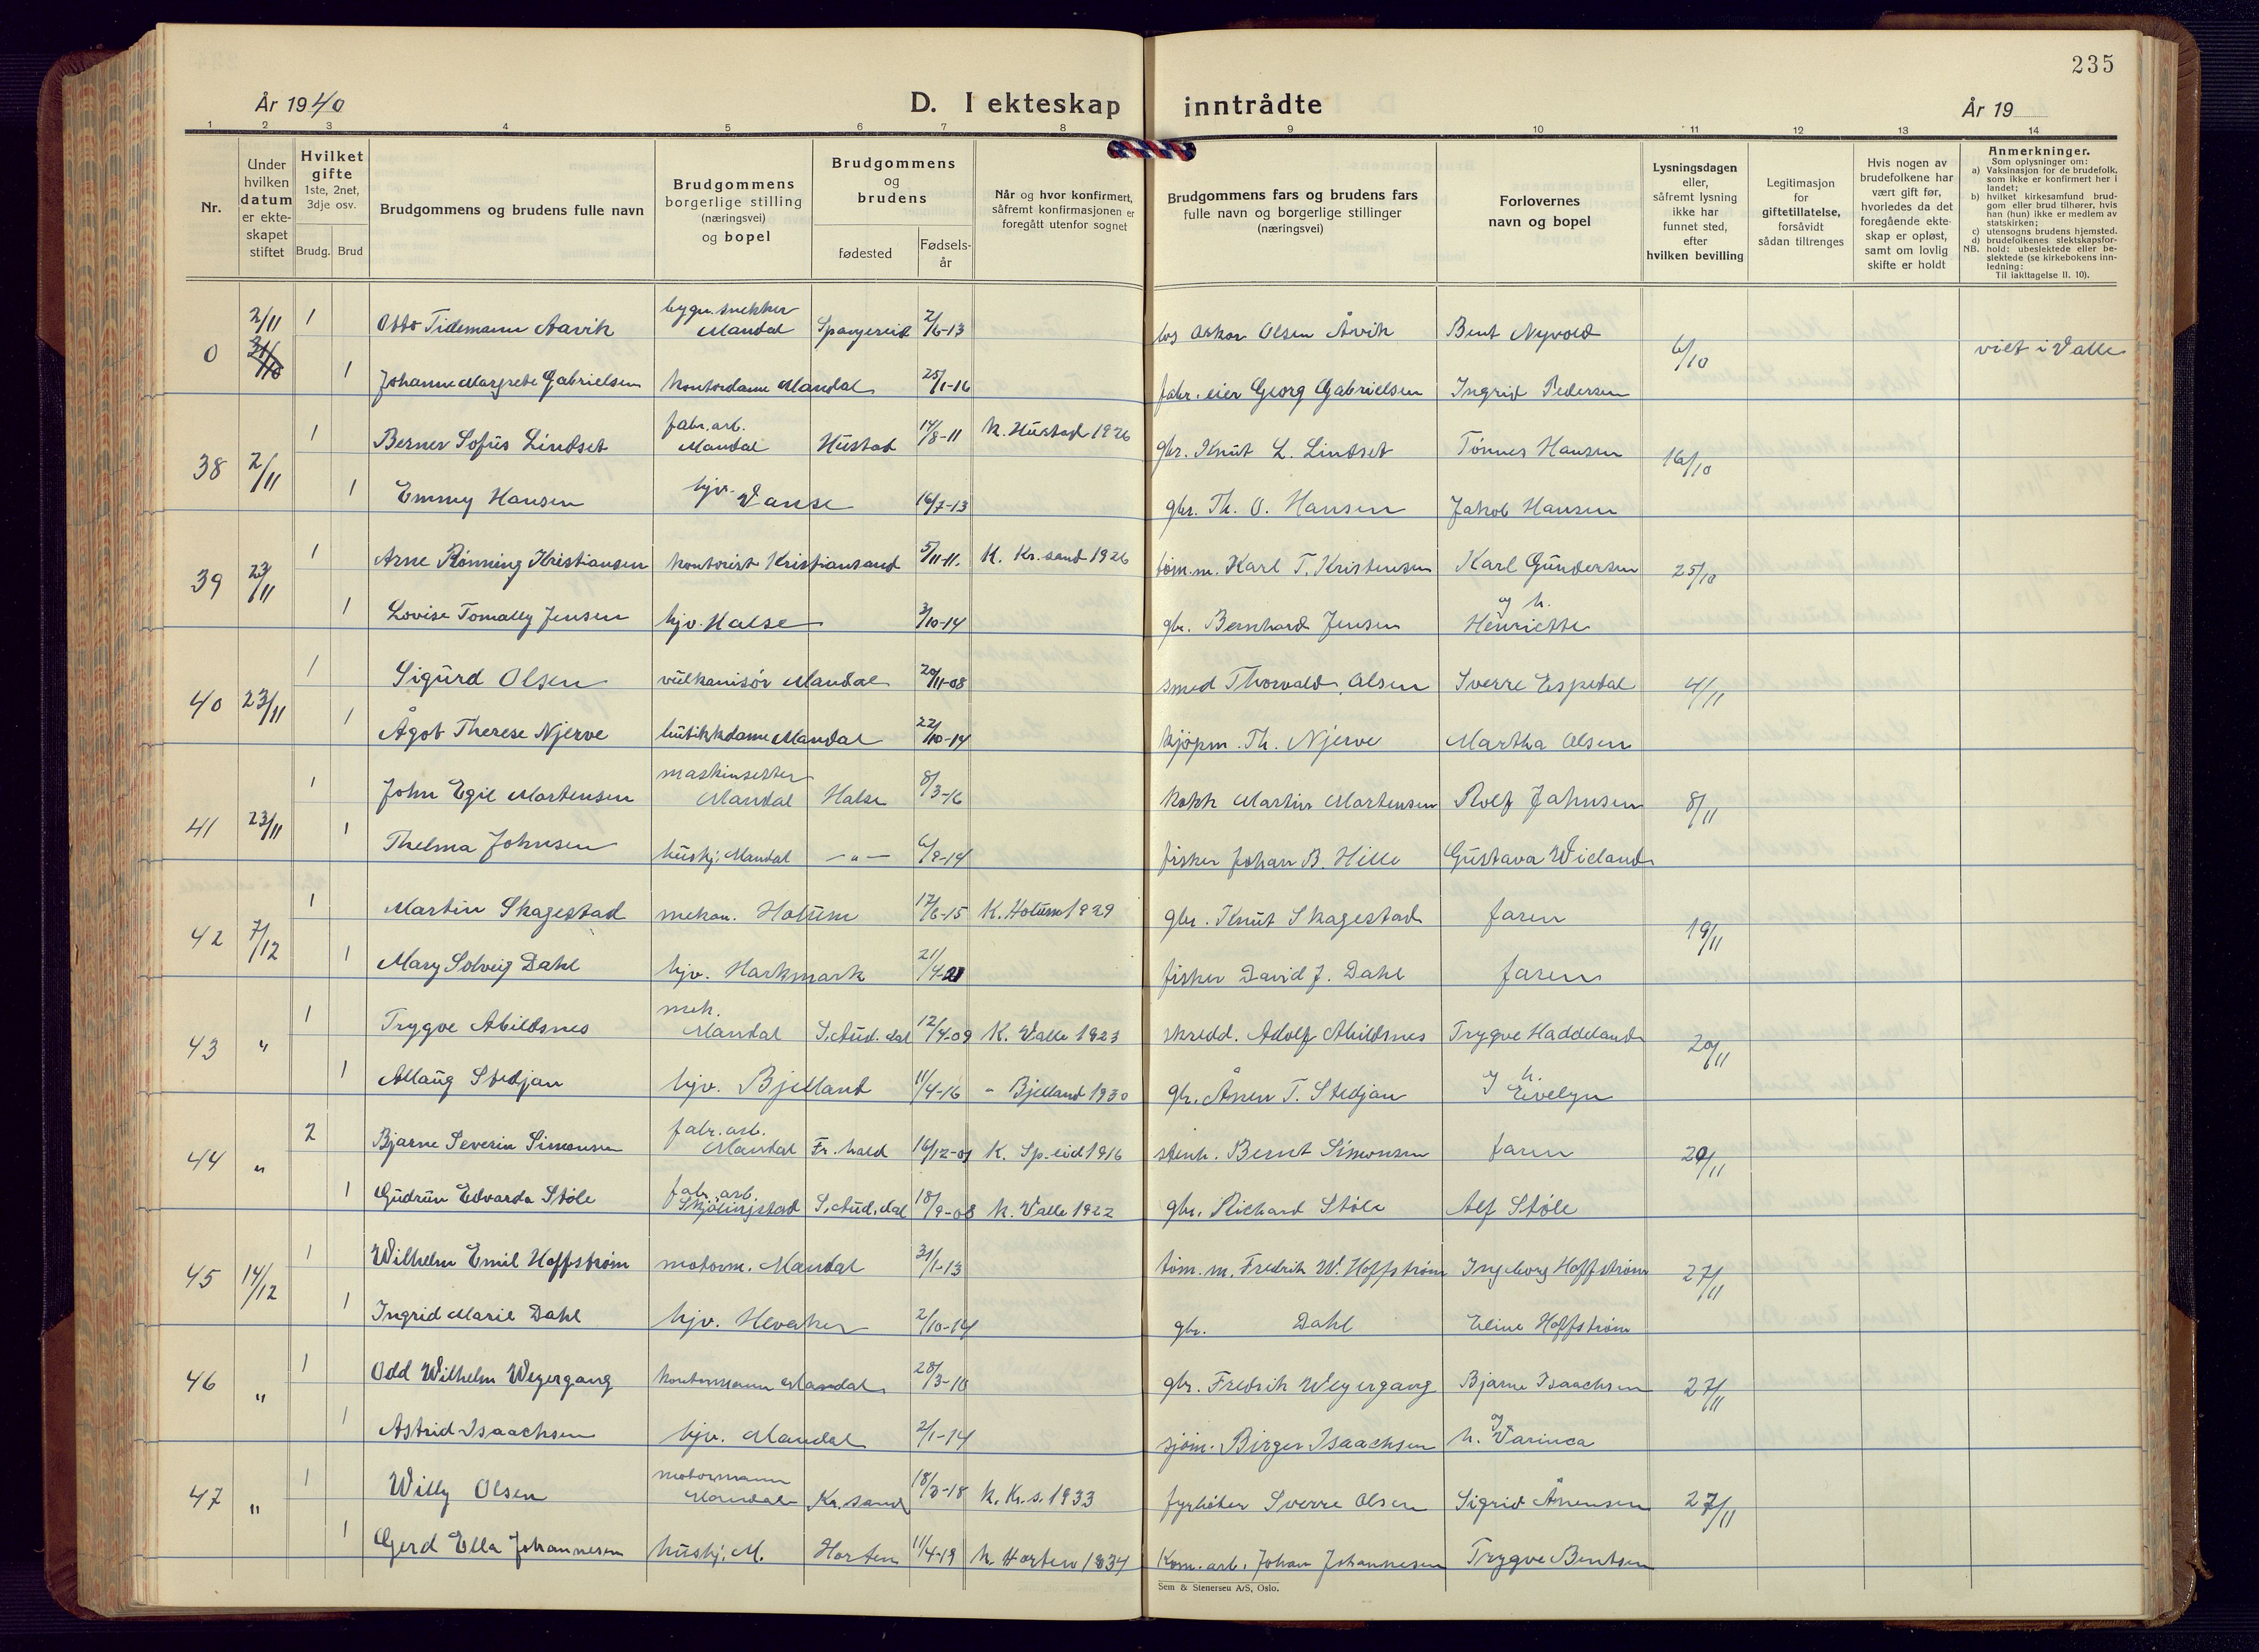 235
År 1940
D. I ekteskap inntrådte
År 19
1 2 3 4 5 6 7 8 9 10 11 12 13 14
Nr.
Under hvilken datum er ekteskapet stiftet
Hvilket gifte 1ste, 2net, 3dje osv.
Brudg. Brud
Brudgommens og brudens fulle navn
Brudgommens borgerlige stilling (næringsvei) og bopel
Brudgommens og brudens
fødested
Fødsels-år
Når og hvor konfirmert, såfremt konfirmasjonen er foregått utenfor sognet
Brudgommens fars og brudens fars fulle navn og borgerlige stillinger (næringsvei)
Forlovernes navn og bopel
Lysningsdagen eller, såfremt lysning ikke har funnet sted, efter hvilken bevilling
Legitimasjon for giftetillatelse, forsåvidt sådan tiltrenges
Hvis nogen av brudefolkene har vært gift før, hvorledes da det foregående ekteskap er opløst, samt om lovlig skifte er holdt
Anmerkninger.
Som oplysninger om:
a) Vaksinasjon for de brudefolk, som ikke er konfirmert her i landet;
b) hvilket kirkesamfund brudgom eller brud tilhører, hvis han (hun) ikke er medlem av statskirken;
c) utensogns brudens hjemsted.
d) brudefolkenes slektskapsforhold: ubeslektede eller beslektede (se kirkebokens innledning:
NB. Til iakttagelse II. 10).
0 2/11 31/10 1 Otto Tidemann Aavik bygn.snekker Mandal Spangereid 2/6-13 los Oskar Olsen Åvik Bent Nyvold 6/10 viet i Valle
1 Johanne Margrete Gabrielsen kontordame Mandal 25/1-16 fabr.eier Georg Gabrielsen Ingrid Pedersen
38 2/11 1 Berner Sofus Lindset fabr.arb. Mandal Hustad 14/8-11 K. Hustad 1926 gbr. Knut L. Lindset Tønnes Hansen 16/10
1 Emmy Hansen hjv. Vanse 16/7-13 gbr. Th. O. Hansen Jakob Hansen
39 23/11 1 Arne Rønning Kristiansen kontorist Kristiansand 5/11-11. K. Kr.sand 1926 tøm.m. Karl T. Kristensen Karl Gundersen 25/10
1 Lovise Tomally Jensen hjv. Halse 3/10-14 gbr. Bernhard Jensen og h. Henriette
40 23/11 1 Sigurd Olsen vulkanisør Mandal 20/11-08 smed Thorvald Olsen Sverre Espedal 4/11
1 Ågot Therese Njerve butikkdame Mandal 22/10-14 kjøpm. Th. Njerve Martha Olsen
41 23/11 1 John Egil Martensen maskinsetter Mandal Halse 8/3-16 kokk Martin Martensen Rolf Jahnsen 8/11
1 Thelma Johnsen hushj. Mandal — " — 6/9-14 fisker Johan B. Hille Gustava Wieland
42 7/12 1 Martin Skagestad mekan. Holum 17/6-15 K. Holum 1929 gbr. Knut Skagestad faren 19/11
1 Mary Solveig Dahl hjv. Harkmark 21/4-21 fisker David J. Dahl faren
43 " 1 Trygve Abildsnes mek. Mandal S. Aud.dal 12/4-09 K. Valle 1923 skredd. Adolf Abildsnes Trygve Haddeland 20/11
1 Allaug Stedjan hjv. Bjelland 11/4-16 " Bjelland 1930 gbr. Ånen T. Stedjan og h. Eivelyn
44 " 2 Bjarne Severin Simonsen fabr.arb. Mandal Fr.hald 16/12-01 K. Sp.eid 1916 stenh. Bernt Simonsen faren 20/11
1 Gudrun Edvarda Støle fabr.arb. Skjølingstad S. Aud.dal 18/9-08 K. Valle 1922 gbr. Richard Støle Alf Støle
45 14/12 1 Wilhelm Emil Hoffstrøm motorm. Mandal 31/1-13 tøm.m. Fredrik W. Hoffstrøm Ingeborg Hoffstrøm 27/11
1 Ingrid Marie Dahl hjv. Hevaker 2/10-14 gbr. Dahl Eline Hoffstrøm
46 " 1 Odd Wilhelm Weyergang kontormann Mandal 28/3-10 gbr. Fredrik Weyergang Bjarne Isaachsen 27/11
1 Astrid Isaachsen hjv. Mandal 2/1-14 sjøm. Birger Isaachsen og h. Varinca
47 " 1 Willy Olsen motormann Mandal Kr.sand 18/3-18 K. Kr.s. 1933 fyrbøter Sverre Olsen Sigrid Ånensen 27/11
1 Gerd Ella Johannesen hushj. M. Horten 11/4-19 K. Horten 1934 Kom.arb. Johan Johannesen Trygve Bentsen
Sem & Stenersen A/S, Oslo.